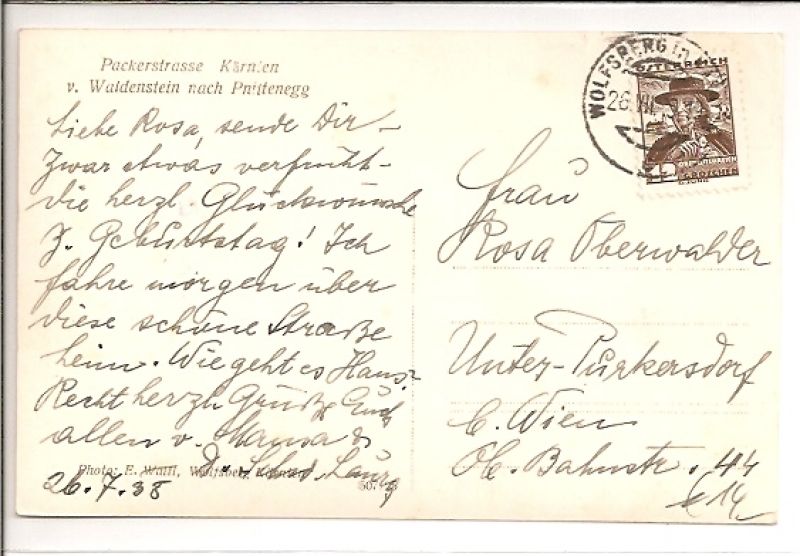 Packerstrasse Kärnten
v. Waldenstein nach Preitenegg
Liebe Rosa, sende Dir –
zwar etwas verfrüht –
die herzl. Glückwünsche
z. Geburtstag! Ich
fahre morgen über
diese schöne Straße
heim. Wie geht es Hans?
Recht herzl. Grüße Euch
allen v. Mama &
Photo: E. Wölfl, Wolfsberg, Kärnten
26.7.38
WOLFSBERG
26. VII
ÖSTERREICH
GROSCHEN
Frau
Rosa Oberwalder
Unter-Purkersdorf
b. Wien
Ob. Bahnstr. 44